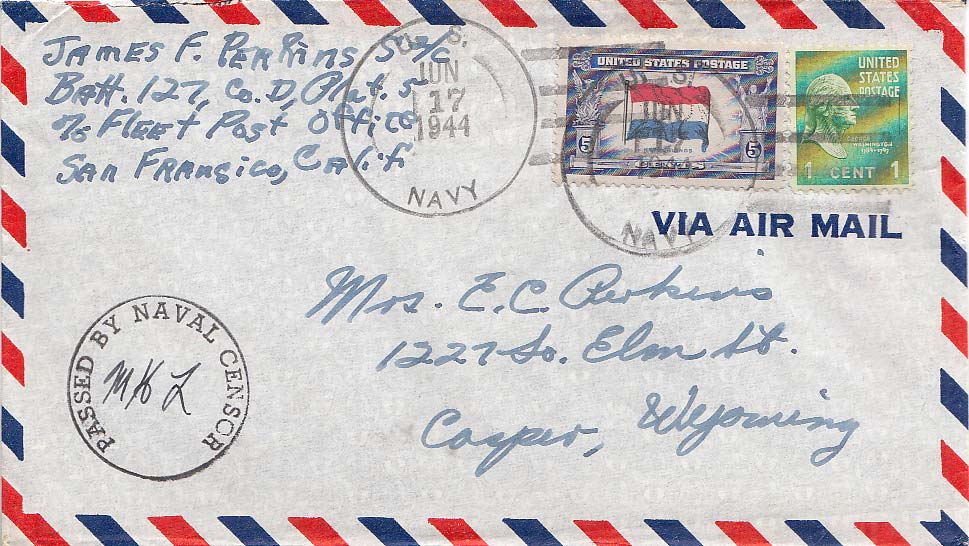 JAMES F. PERKINS S 2/C
Batt. 127, Co. D, Plat. 5
c/o Fleet Post Office
San Fransico, Calif
U. S.
JUN
17
1944
NAVY
UNITED STATES POSTAGE
5
5
CENTS
U. S.
JUN
17
NAVY
UNITED
STATES
POSTAGE
WASHINGTON
1789-1797
1 CENT 1
VIA AIR MAIL
Mrs. E. C. Perkins
1227 So. Elm St.
Casper, Wyoming
PASSED BY NAVAL CENSOR